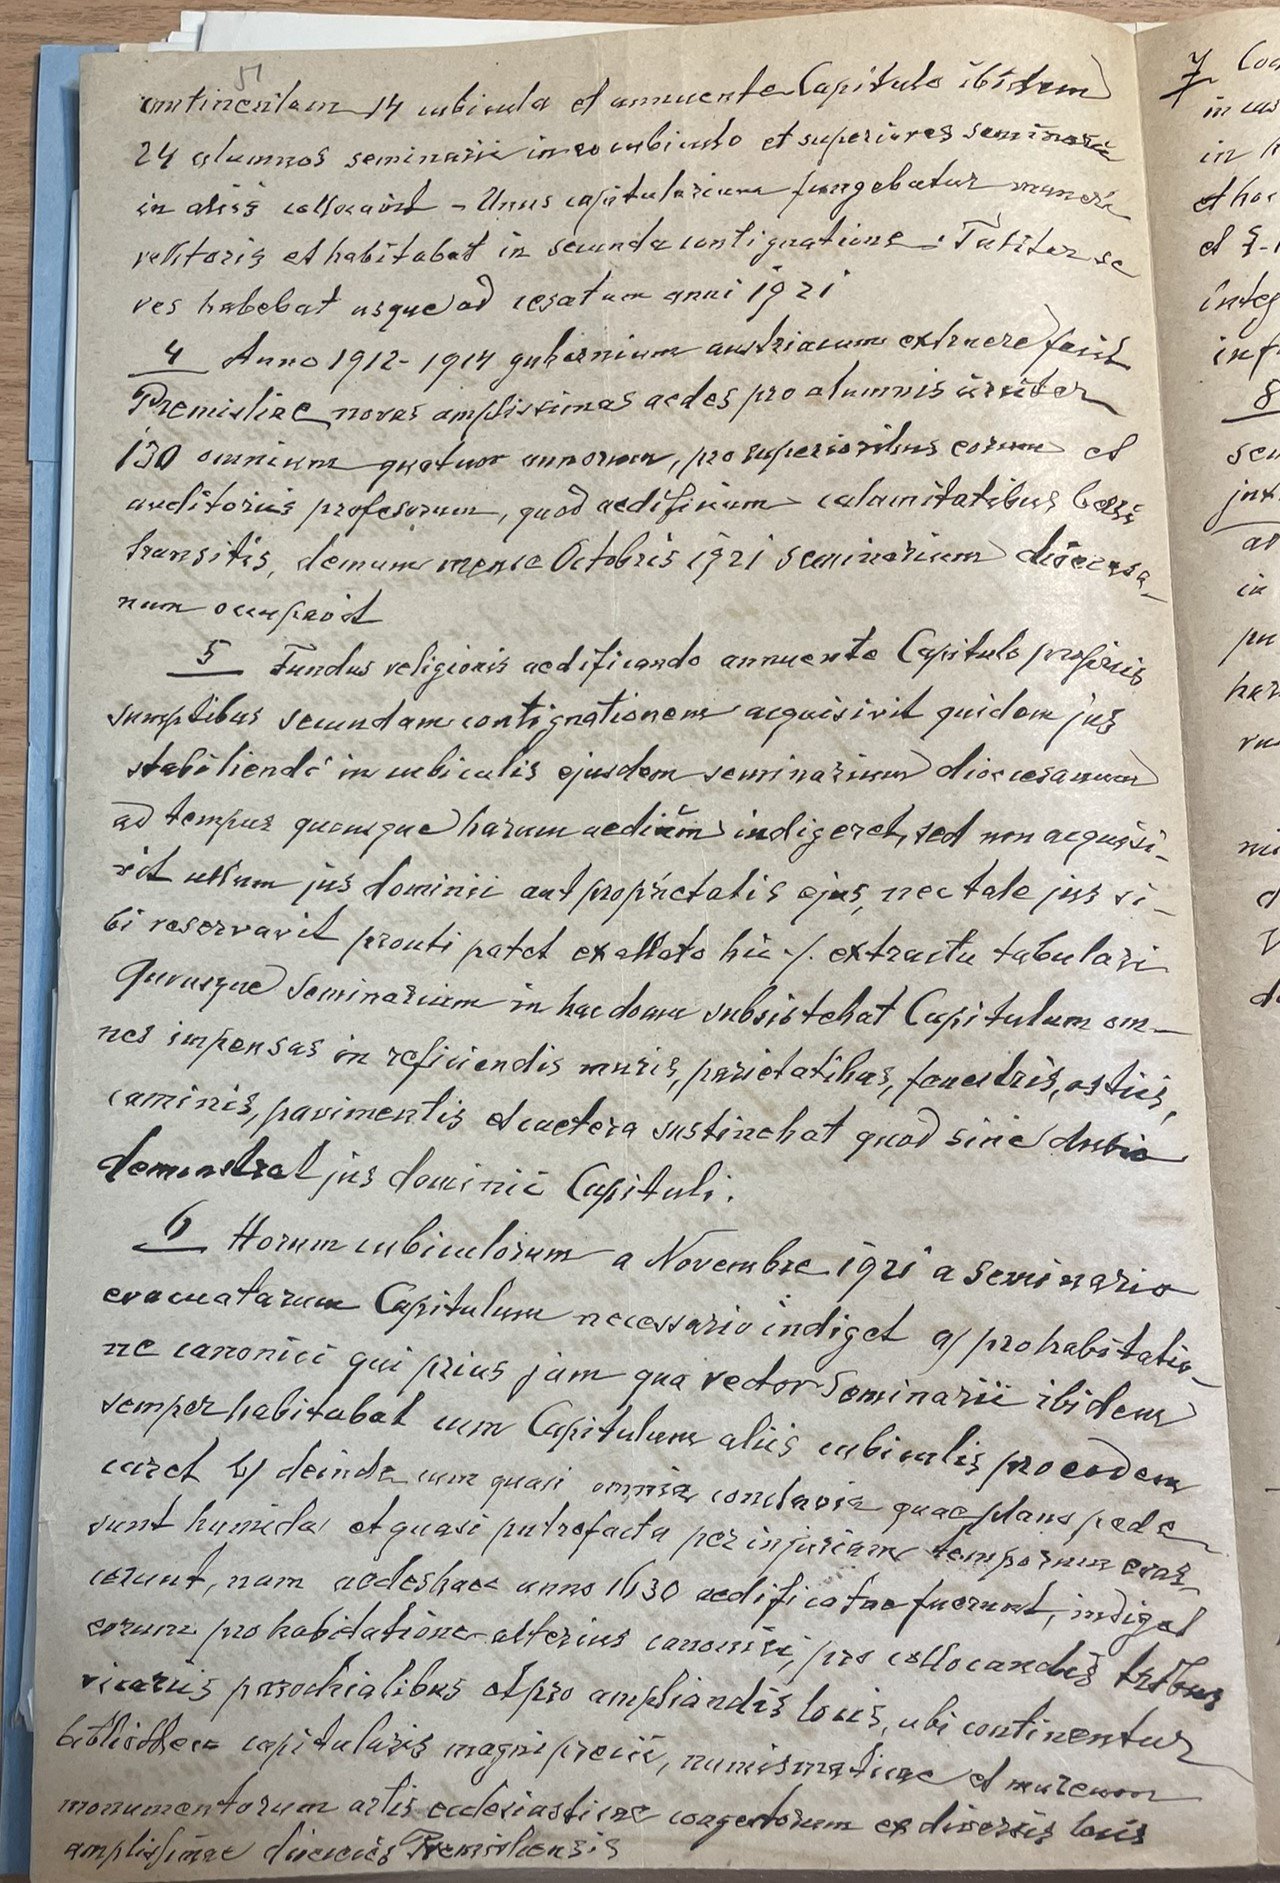 51
continentem 14 cubicula et annuente Capitulo ibidem
24 alumnos seminarii in eo cubiculo et superiores seminarii
in aliis collocavit – Unus capitularium fungebatur munere
rectoris et habitabat in secunda contignatione. Taliter se
res habebat usque ad aestatum anni 1921
4 Anno 1912–1914 gubernium austriacum extruere fecit
Premisliae novas amplissimas aedes pro alumnis circiter
130 omnium quatuor annorum, pro superioribus eorum et
auditoriis profesorum, quod aedificium calamitatibus belli
transitis, demum mense Octobris 1921 seminarium dioecesa-
num occupavit
5 Fundus religionis aedificando annuente Capitulo propriis
sumptibus secundam contignationem acquisivit quidem jus
stabiliendi in cubiculis ejusdem seminarium dioecesanum
ad tempus quousque harum aedium indigeret, sed non acquisi-
vit ullum jus dominii aut proprietatis ejus, nec tale jus si-
bi reservavit prouti patet ex allato hic ·/. extractu tabulari
Quousque Seminarium in hac domu subsistebat Capitulum om-
nes impensas in reficiendis muris, parietatibus, fenestris, ostiis,
caminis, pavimentis et caetera sustinebat quod sine dubio
demonstrat jus dominii Capituli.
6 Horum cubiculorum a Novembre 1921 a seminario
evacuatarum Capitulum necessario indiget a/ pro habitatio-
ne canonici qui prius jam qua rector Seminarii ibidem
semper habitabat cum Capitulum aliis cubiculis pro eodem
caret b/ deinde cum quasi omnia conclavia quae plano pede
sunt humida et quasi putrefacta per injuriam temporum evas-
erunt, nam aedes haec anno 1630 aedificatae fuerunt, indiget
eorum pro habitatione alterius canonici, pro collocandis tribus
vicariis parochialibus et pro ampliandis locis, ubi continentur
bibliotheca capitularis magni precii, numismaticae et museum
monumentorum artis ecclesiasticae congestorum ex diversis locis
amplissimae dioecesis Premisliensis
7
in
in
et
8